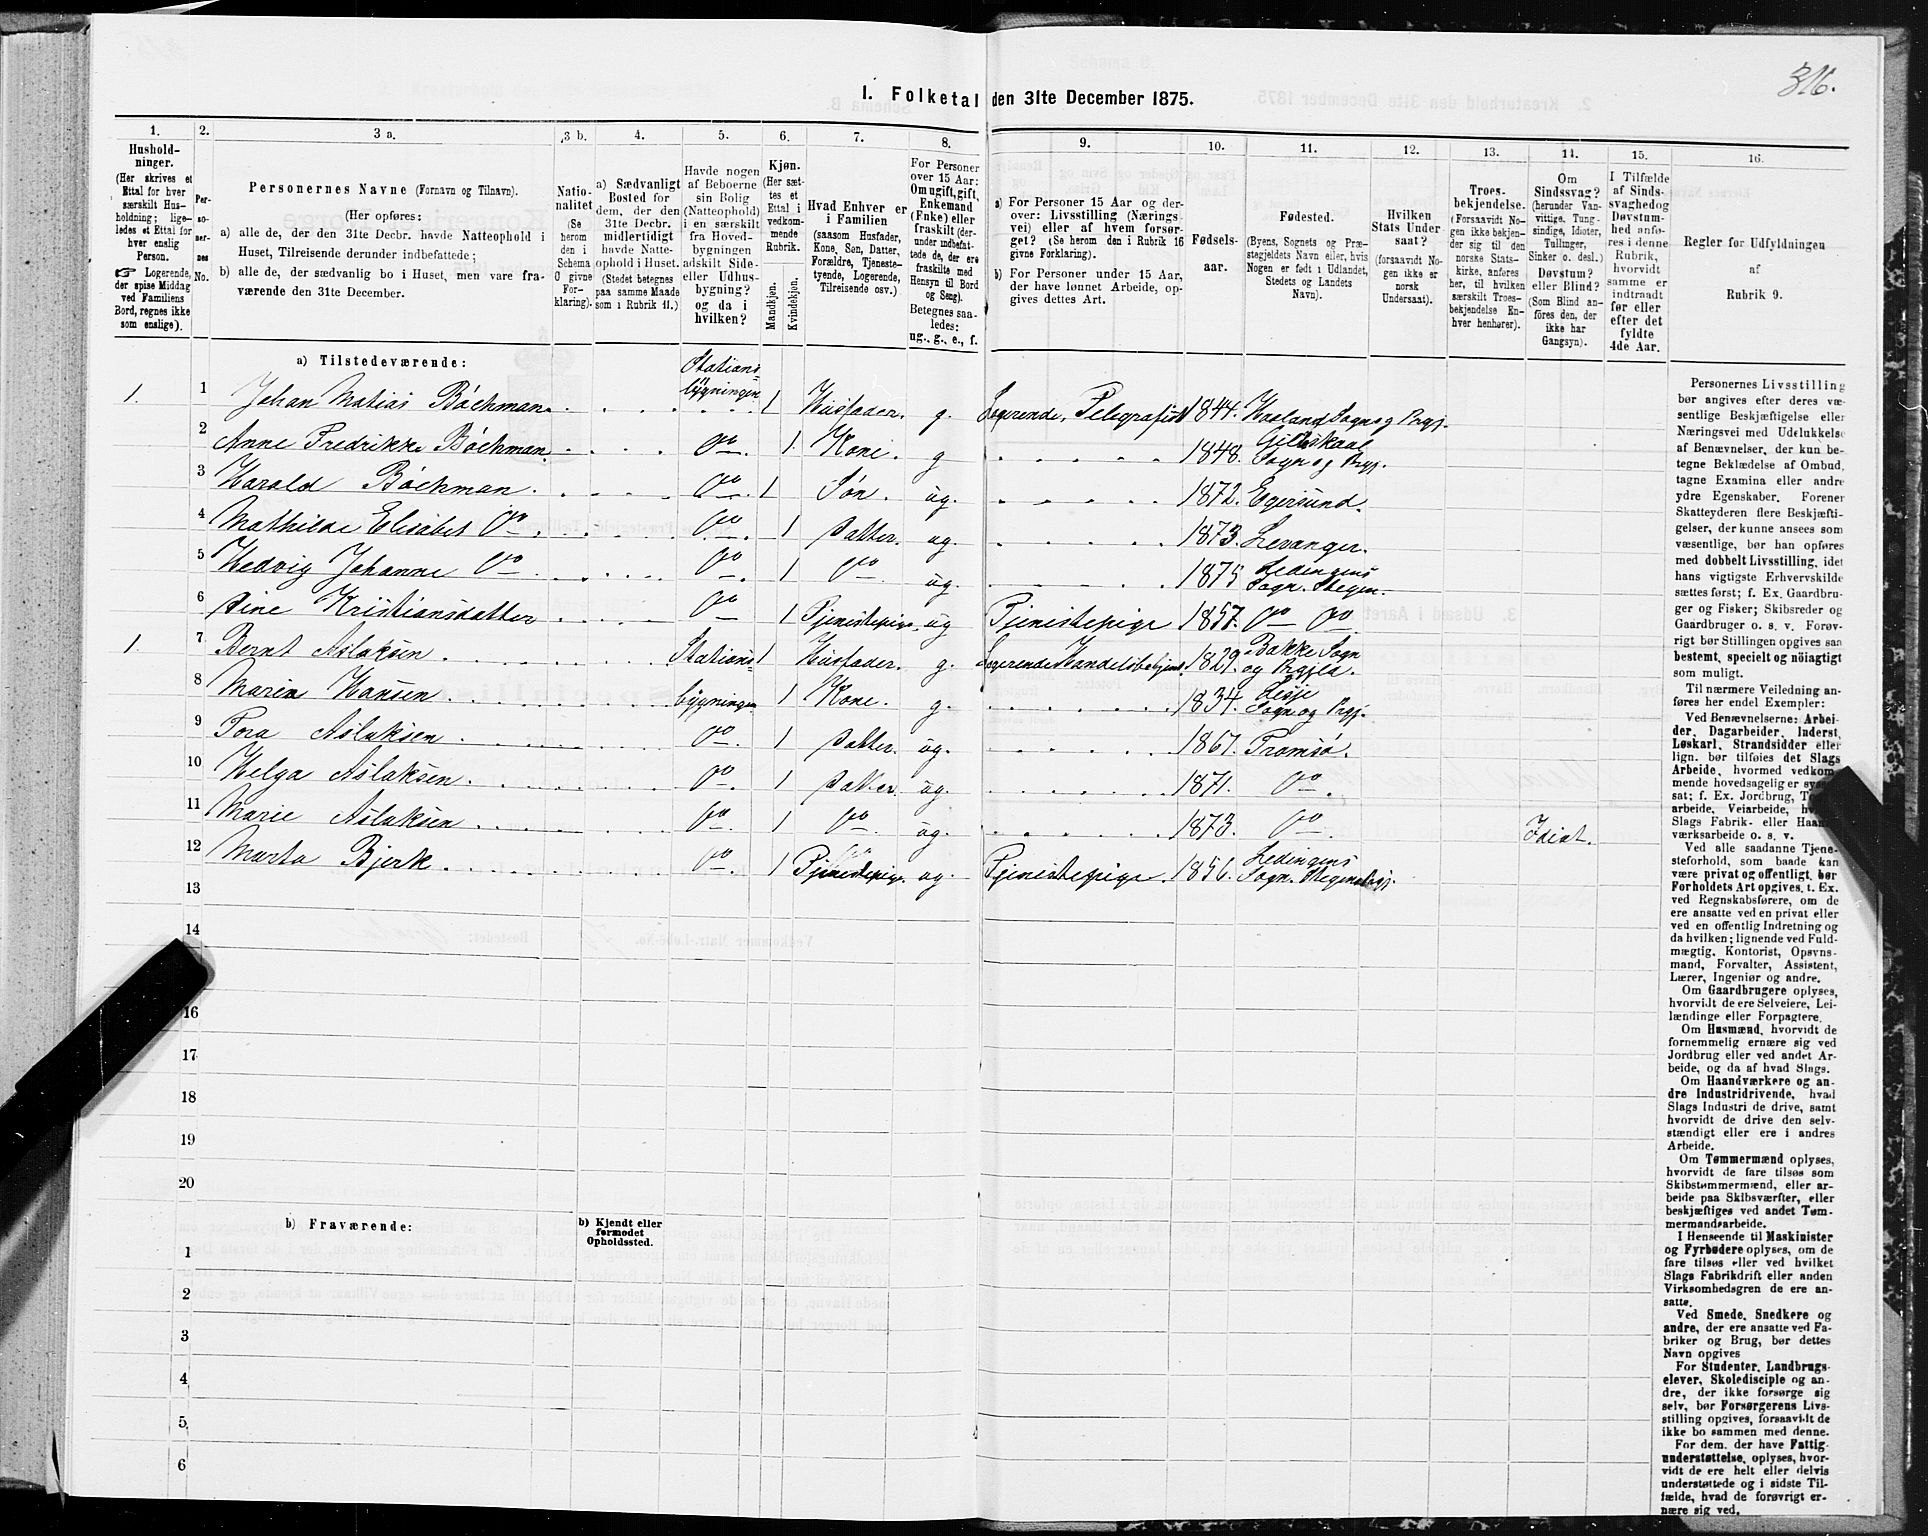 316.
I. Folketal den 31te December 1875.
1. 2. 3 a. 3 b. 4. 5. 6. 7. 8. 9. 10. 11. 12. 13. 14. 15. 16.
Hushold-
ninger.
(Her skrives et
Ettal for hver
særskilt Hus-
holdning; lige-
ledes et Ettal for
hver enslig
Person.
☞ Logerende,
der spise Middag
ved Familiens
Bord, regnes ikke
som enslige).
Per-
so-
ner-
nes
No.
Personernes Navne (Fornavn og Tilnavn).
(Her opføres:
a) alle de, der den 31te Decbr. havde Natteophold i
Huset, Tilreisende derunder indbefattede;
b) alle de, der sædvanlig bo i Huset, men vare fra-
værende den 31te December.
Natio-
nalitet
(Se
herom
den i
Schema
O givne
For-
klaring).
a) Sædvanligt
Bosted for
dem, der den
31te Decbr.
midlertidigt
havde Natte-
ophold i Huset.
(Stedet betegnes
paa samme Maade
som i Rubrik 11.)
Havde nogen
af Beboerne
sin Bolig
(Natteophold)
i en særskilt
fra Hoved-
bygningen
adskilt Side-
eller Udhus-
bygning?
og da i
hvilken?
Kjøn.
(Her sæt-
tes et
Ettal i
vedkom-
mende
Rubrik.
Mandkjøn.
Kvindekjøn.
Hvad Enhver er
i Familien
(saasom Husfader,
Kone, Søn, Datter,
Forældre, Tjeneste-
tyende, Logerende,
Tilreisende osv.)
For Personer
over 15 Aar:
Om ugift, gift,
Enkemand
(Enke) eller
fraskilt (der-
under indbefat-
tede de, der ere
fraskilte med
Hensyn til Bord
og Seng).
Betegnes saa-
ledes:
ug., g., e., f.
a) For Personer 15 Aar og der-
over: Livsstilling (Nærings-
vei) eller af hvem forsør-
get? (Se herom den i Rubrik 16
givne Forklaring).
b) For Personer under 15 Aar,
der have lønnet Arbeide, op-
gives dettes Art.
Fødsels-
aar.
Fødested.
(Byens, Sognets og Præ-
stegjeldets Navn eller, hvis
Nogen er født i Udlandet,
Stedets og Landets
Navn).
Hvilken
Stats Under
saat?
(forsaavidt No-
gen ikke er
norsk
Undersaat).
Troes-
bekjendelse.
(Forsaavidt No-
gen ikke bekjen-
der sig til den
norske Stats-
kirke, anføres
her, til hvilken
særskilt Troes-
bekjendelse En-
hver henhører).
Om
Sindssvag?
(herunder Van-
vittige, Tung-
sindige, Idioter,
Tullinger,
Sinker o. desl.)
Døvstum?
eller Blind?
(Som Blind an-
føres den, der
ikke har
Gangsyn).
I Tilfælde
af Sinds-
svaghed og
Døvstum-
hed anfø-
res i denne
Rubrik,
hvorvidt
samme er
indtraadt
før eller
efter det
fyldte
4de Aar.
Regler for Udfyldningen
af
Rubrik 9.
a) Tilstedeværende:
1. 1 Johan Matias Böckman. Stations- bygningen 1 Husfader. g. Logerende, Telegrafist 1844. Sogn og Prgj.
2 Anne Fredrikke Böckman. Do. 1. Kone. g 1848. Gildeskaal Sogn og Prgj.
3 Harald Böckman. Do 1 Søn. ug. 1872. Egersund.
4 Mathilde Elisabet Do. Do. 1 Datter. ug. 1873. Levanger.
5 Hedvig Johanne Do Do. 1 Do ug. 1875 Ledingens Sogn. Stegen.
6 Sine Kristiansdatter Do 1 Tjenistepige. ug Tjenistepige 1857. Do Do.
1. 7 Bernt Aslaksen. Stations- 1 Husfader. g. Logerende Handelsbetjent. 1829. Bakke Sogn og Prgjld.
8 Maria Hansen. bygningen 1 Kone. g. 1834. Lesje Sogn og Prgj.
9 Tora Aslaksen. Do. 1 Datter. ug. 1867. Tromsø.
10 Helga Aslaksen. Do. 1 Datter ug. 1871. Do.
11 Marie Aslaksen. Do. 1 Do. ug. 1873. Do. Idiot.
12 Marta Bjerk. Do. 1 Tjenistepige. ug. Tjenistepige. 1856. Ledingens Sogn. Stegens Prgj.
13
14
16
17
18
19
20
b) Fraværende:
b) Kjendt eller
formodet
Opholdssted.
1
2
3
4
5
6
Personernes Livsstilling
bør angives efter deres væ-
sentlige Beskjæftigelse eller
Næringsvei med Udelukkelse
af Benævnelser, der kun be-
tegne Beklædelse af Ombud,
tagne Examina eller andre
ydre Egenskaber. Forener
Skatteyderen flere Beskjæfti-
gelser, der kunne ansees som
væsentlige, bør han opføres
med dobbelt Livsstilling, idet
hans vigtigste Erhvervskilde
sættes først; f. Ex. Gaardbru-
ger og Fisker; Skibsreder og
Gaardbruger o. s. v. Forøv-
rigt bør Stillingen opgives saa
bestemt, specielt og nöiagtigt
som muligt.
Til nærmere Veiledning an-
føres her endel Exempler:
Ved Benævnelserne: Arbei-
der, Dagarbeider, Inderst,
Løskarl, Strandsidder eller
lign. bør tilføies det Slags
Arbeide, hvormed vedkom-
mende hovedsagelig er syssel-
sat; f. Ex. Jordbrug,
arbeide, Veiarbeide,
Slags Fabrik- eller
værksarbeide o. s. v.
Ved alle saadanne Tjene-
steforhold, som baade kan
være privat og offentligt, bør
Forholdets Art opgives, t. Ex.
ved Regnskabsførere, om de
ere ansatte ved en privat eller
ved en offentlig Indretning og
da hvilken; lignende ved Fuld-
mægtig, Kontorist, Opsyns-
mand, Forvalter, Assistent,
Lærer, Ingeniør og andre.
Om Gaardbrugere oplyses,
hvorvidt de ere Selveiere, Lei-
lændinge eller Forpagtere.
Om Husmænd, hvorvidt de
fornemmelig ernære sig ved
Jordbrug eller ved andet Ar-
beide, og da af hvad Slags.
Om Haandværkere og an-
dre Industridrivende, hvad
Slags Industri de drive, samt
hvorvidt de drive den selv-
stændigt eller ere i andres
Arbeide.
Om Tømmermænd oplyses,
hvorvidt de fare tilsøs som
Skibstømmermænd, eller ar-
beide paa Skibsværfter, eller
beskjæftiges ved andet Tøm-
mermandsarbeide.
I Henseende til Maskinister
og Fyrbødere oplyses, om de
fare tilsøs eller ved hvilket
Slags Fabrikdrift eller anden
Virksomhedsgren de ere an-
satte.
Ved Smede, Snedkere og
andre, der ere ansatte ved Fa-
briker og Brug, bør dettes
Navn opgives
For Studenter, Landbrugs-
elever, Skoledisciple og an-
dre, der ikke forsørge sig
selv, bør Forsørgerens Livs-
stilling opgives, forsaavidt de
ikke bo sammen med denne.
For dem, der have Fattig-
understøttelse, oplyses, hvor-
vidt de ere helt eller delvis
understøttede og i sidste Til-
fælde, hvad de forøvrigt er-
nære sig ved.